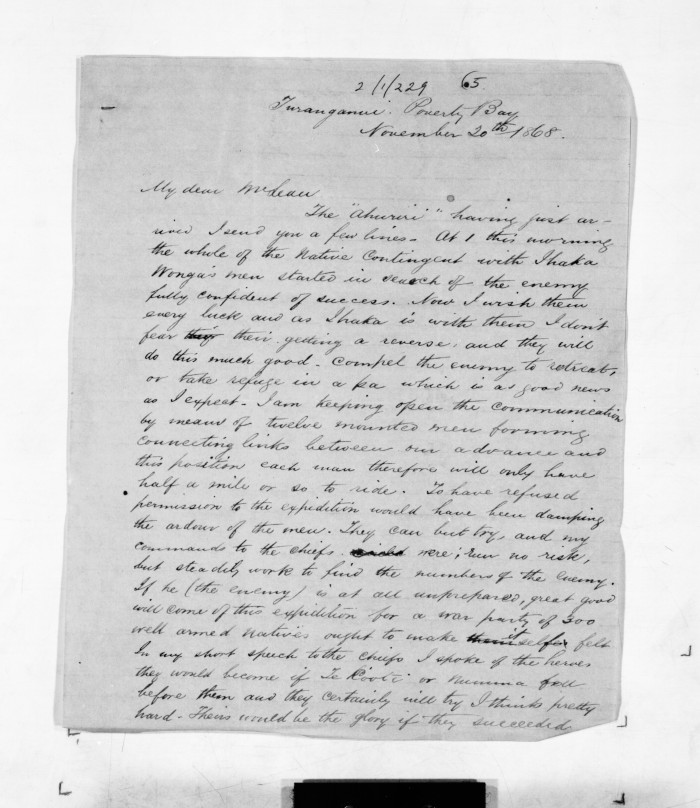 2/1/229 65.
Turanganui. Poverty Bay
November 20th 1868.
My dear McLean
The "Ahuriri" having just ar-
rived I send you a few lines. At 1 this morning
the whole of the Native Contingent with Ihaka
Wonga's men started in search of the enemy
fully confident of success. Now I wish them
every luck and as Ihaka is with them I don't
fear their getting a reverse, and they will
do this much good. Compel the enemy to retreat,
or take refuge in a pa which is as good news
as I expect. I am keeping open the communication
by means of twelve mounted men forming
connecting links between our advance and
this position each man therefore will only have
half a mile or so to ride. To have refused
permission to the expedition would have been damping
the ardour of the men. They can but try, and my
commands to the chiefs were; run no risk,
but steadily work to find the numbers of the enemy.
If he (the enemy) is at all unprepared, great good
will come of this expedition for a war party of 300
well armed natives ought to make itself felt
In my short speech to the chiefs I spoke of the heroes
they would become if Te Kooti or fell
before them and they certainly will try I think pretty
hard. Theirs would be the glory if they succeeded